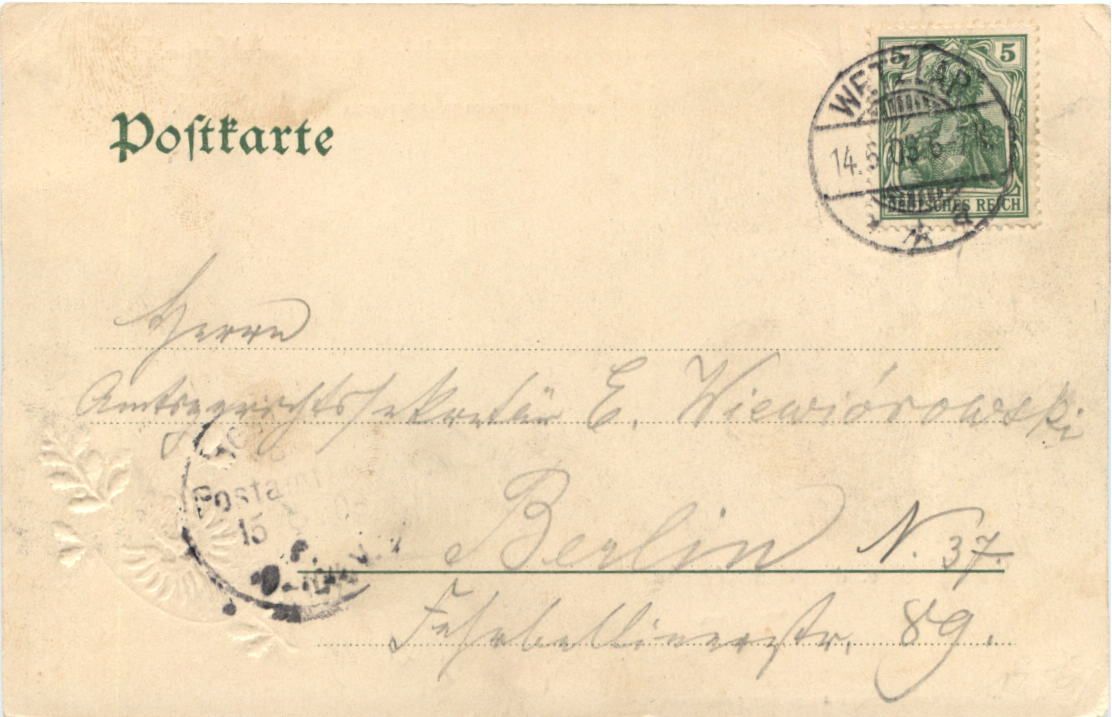 Postkarte
5
DEUTSCHES REICH
WETZLAR
14.6.03 6-7N.
Herrn
Amtsgerichtssekretär E. Wiewiórowski
Postamt
15
Berlin N. 37.
Fehrbellinerstr. 89.